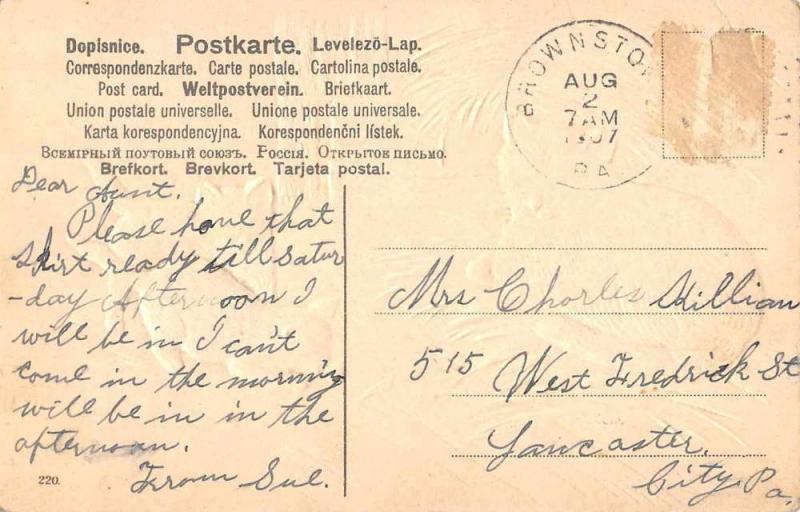 Dopisnice. Postkarte. Levelezö-Lap.
Correspondenzkarte. Carte postale. Cartolina postale.
Post card. Weltpostverein. Briefkaart.
Union postale universelle. Unione postale universale.
Karta korespondencyjna. Korespondenčni lístek.
Всемірный поутовый союзъ. Россія. Открытое письмо.
Brefkort. Brevkort. Tarjeta postal.
BROWNSTO
AUG
2
7AM
1907
PA
Dear Aunt.
Please have that
skirt ready till satur
-day Afternoon I
will be in I can't
come in the morning
will be in in the
afternoon.
From Sue.
220.
Mrs Charles Killian
515 West Fredrick St
Lancaster.
City. Pa,